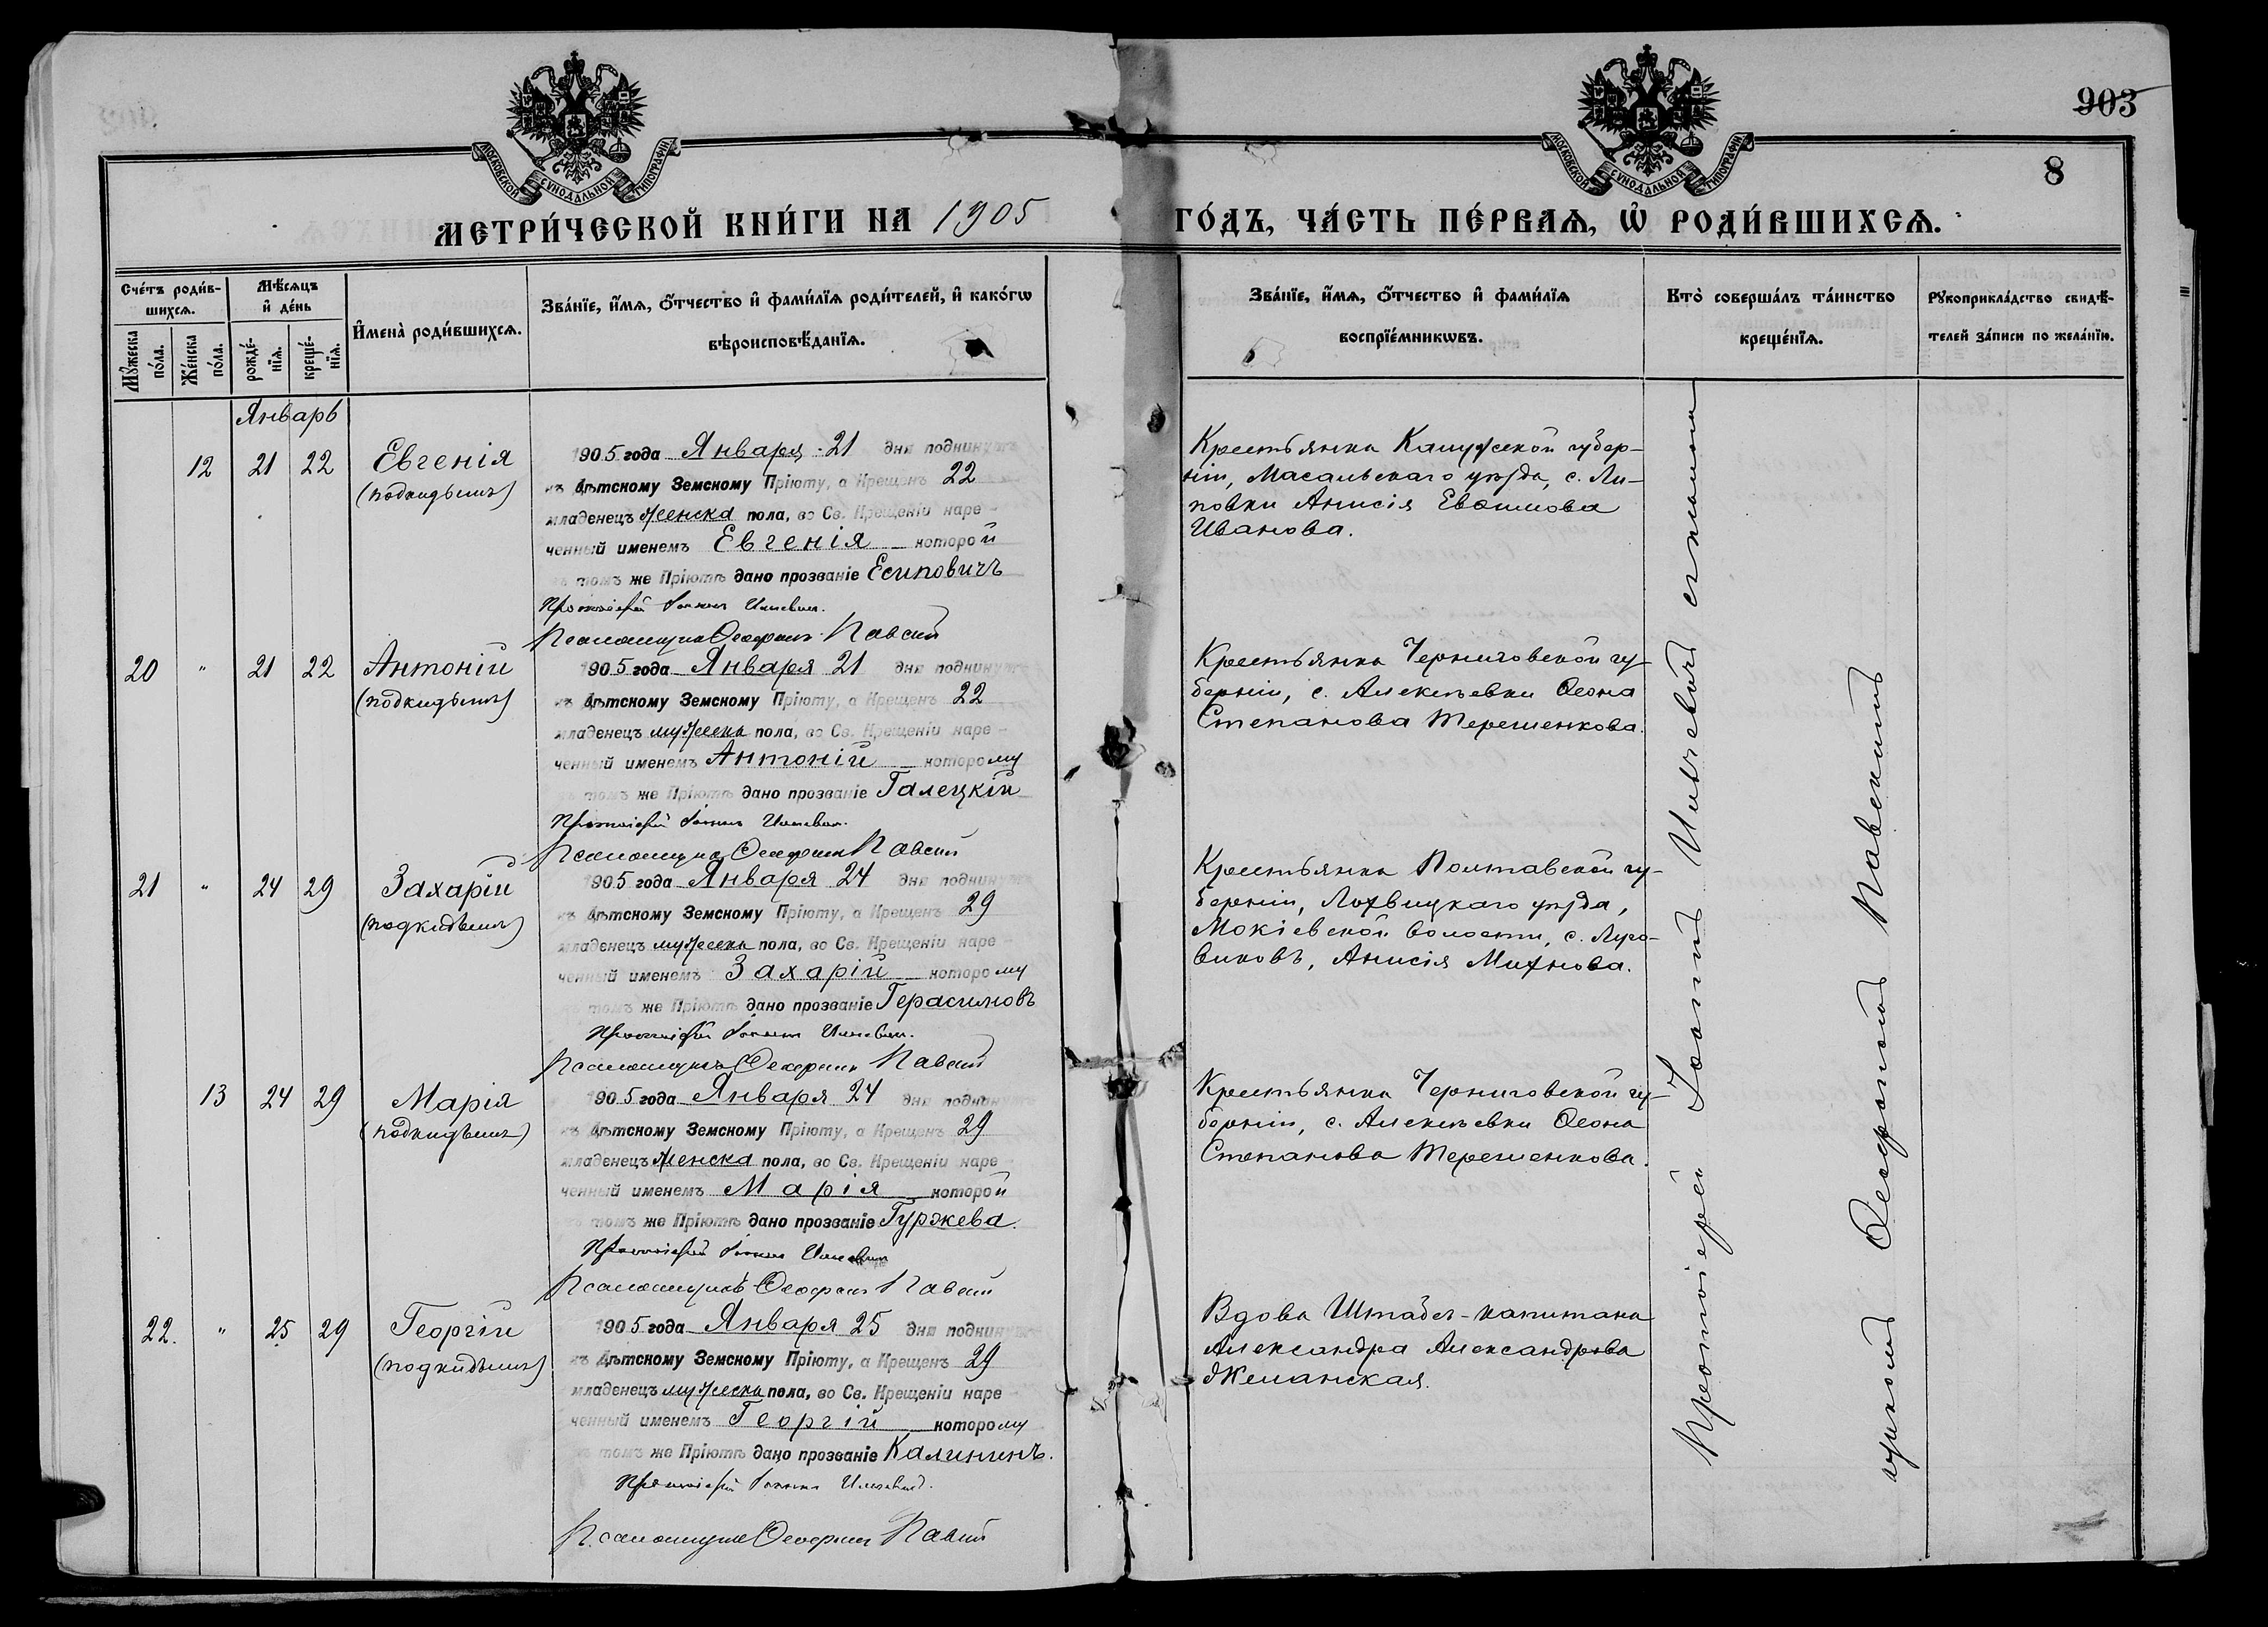 903
8
МОСКОВСКОЙ СѴНОДАЛЬНОЙ ТИПОГРАФІИ
МОСКОВСКОЙ СѴНОДАЛЬНОЙ ТИПОГРАФІИ
МЕТРИ́ЧЕСКОЙ КНИ́ГИ НА 1905 ГО́ДЪ, ЧА́СТЬ ПЕ́РВАѦ, Ѿ РОДИ́ВШИХСѦ.
Сче́тъ роди́в-
шихсѧ.
Мꙋ́жеска по́ла.
Же́нска по́ла.
Мѣ́сѧцъ
и҆ де́нь
рожде́-
нїѧ.
креще́-
нїѧ.
И҆мена̀ роди́вшихсѧ.
Зва́нїе, и҆́мѧ, ѻ҆́тчество и҆ фами́лїѧ роди́телей, и҆ како́гѡ
вѣроисповѣ́данїѧ.
Зва́нїе, и҆́мѧ, ѻ҆́тчество и҆ фами́лїѧ
воспрїе́мникѡвъ.
Кто̀ соверша́лъ та́инство
креще́нїѧ.
Рꙋкоприкла́дство свидѣ́-
телей за́писи по жела́нїю.
Январь
12 21 22 Евгенія
(подкидышъ)
1905 года Января 21 дня подкинутъ
къ Дѣтскому Земскому Пріюту, а Крещенъ 22
младенецъ женска пола, во Св. Крещеніи наре-
ченный именемъ Евгенія которой
въ томъ же Пріютѣ дано прозваніе Есиповичъ
Протоіерей Іоаннъ
Псаломщикъ Ѳеофилъ
Крестьянка Калужской губер-
ніи, Масальскаго уѣзда, с. Ли-
повки Анисія Евѳимова
Иванова.
20 " 21 22 Антоній
(подкидышъ)
1905 года Января 21 дня подкинутъ
къ Дѣтскому Земскому Пріюту, а Крещенъ 22
младенецъ мужеска пола, во Св. Крещеніи наре-
ченный именемъ Антоній которому
въ томъ же Пріютѣ дано прозваніе Галецкій
Протоіерей Іоаннъ
Псаломщикъ Ѳеофилъ
Крестьянка Черниговской гу-
берніи, с. Алексѣевки Ѳеона
Степанова Терешенкова.
21 " 24 29 Захарій
(подкидышъ)
1905 года Января 24 дня подкинутъ
къ Дѣтскому Земскому Пріюту, а Крещенъ 29
младенецъ мужеска пола, во Св. Крещеніи наре-
ченный именемъ Захарій которому
въ томъ же Пріютѣ дано прозваніе Герасимовъ
Протоіерей Іоаннъ
Псаломщикъ Ѳеофилъ
Крестьянка Полтавской гу-
берніи, Лохвицкаго уѣзда,
Мокіевской волости, с. Луго-
виковъ, Анисія Михнова.
13 24 29 Марія
(подкидышъ)
1905 года Января 24 дня подкинутъ
къ Дѣтскому Земскому Пріюту, а Крещенъ 29
младенецъ женска пола, во Св. Крещеніи наре-
ченный именемъ Марія которой
въ томъ же Пріютѣ дано прозваніе Гуржева.
Протоіерей Іоаннъ
Псаломщикъ Ѳеофилъ
Крестьянка Черниговской гу-
берніи, с. Алексѣевки Ѳеона
Степанова Терешенкова.
22. " 25 29 Георгій
(подкидышъ)
1905 года Января 25 дня подкинутъ
къ Дѣтскому Земскому Пріюту, а Крещенъ 29
младенецъ мужеска пола, во Св. Крещеніи наре-
ченный именемъ Георгій которому
въ томъ же Пріютѣ дано прозваніе Калининъ.
Протоіерей Іоаннъ
Псаломщикъ Ѳеофилъ
Вдова Штабсъ-капитана
Александра Александрова
Желанская.
Протоіерей Іоаннъ